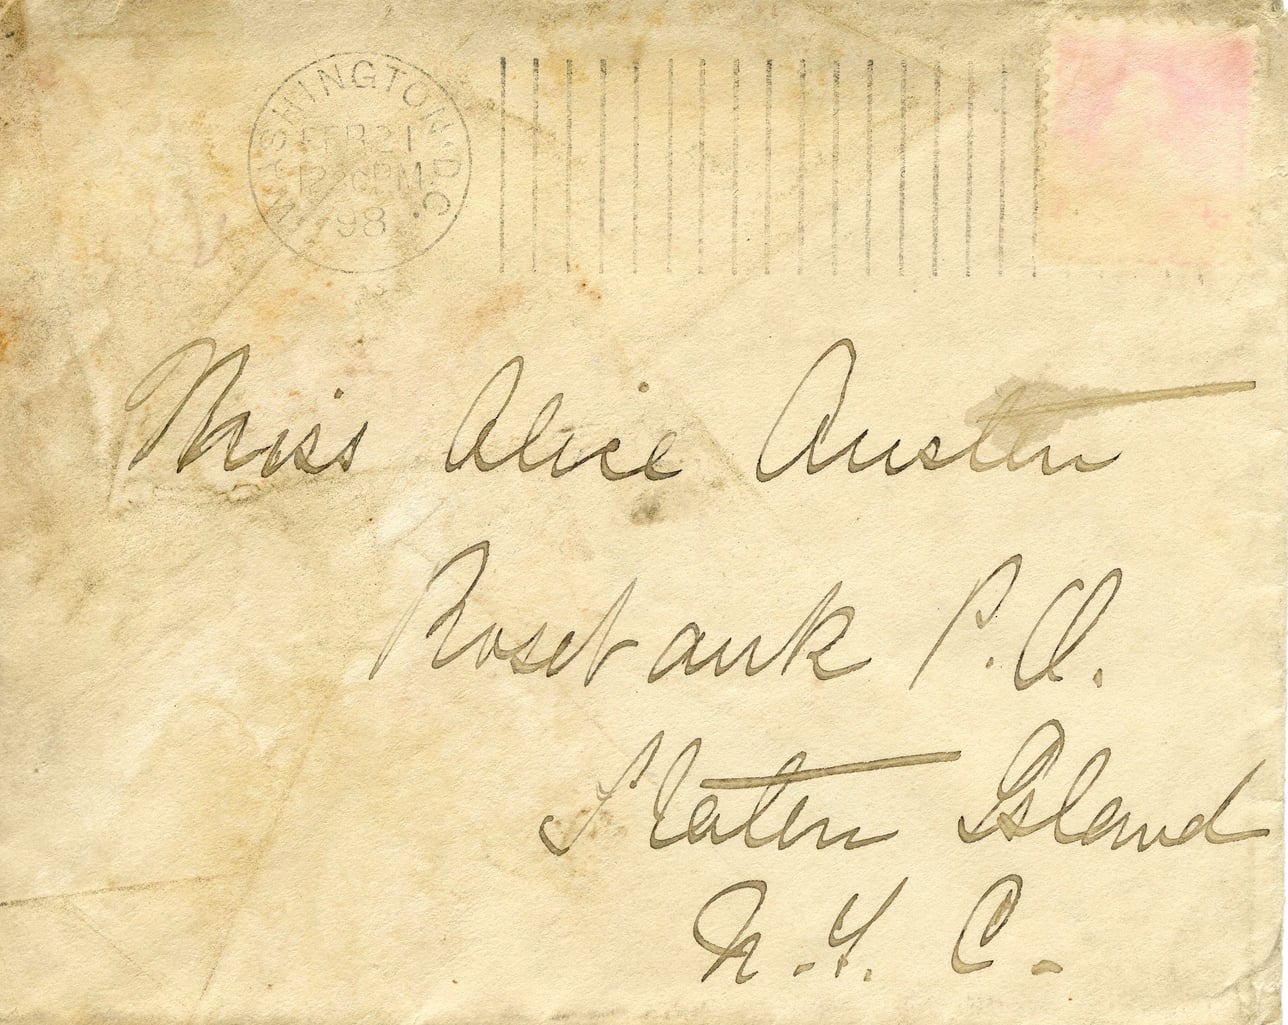 WASHINGTON, D.C.
FEB 21
12 30 PM
'98
Miss Alice Austen
Rosebank P.O.
Staten Island
N.Y. C.